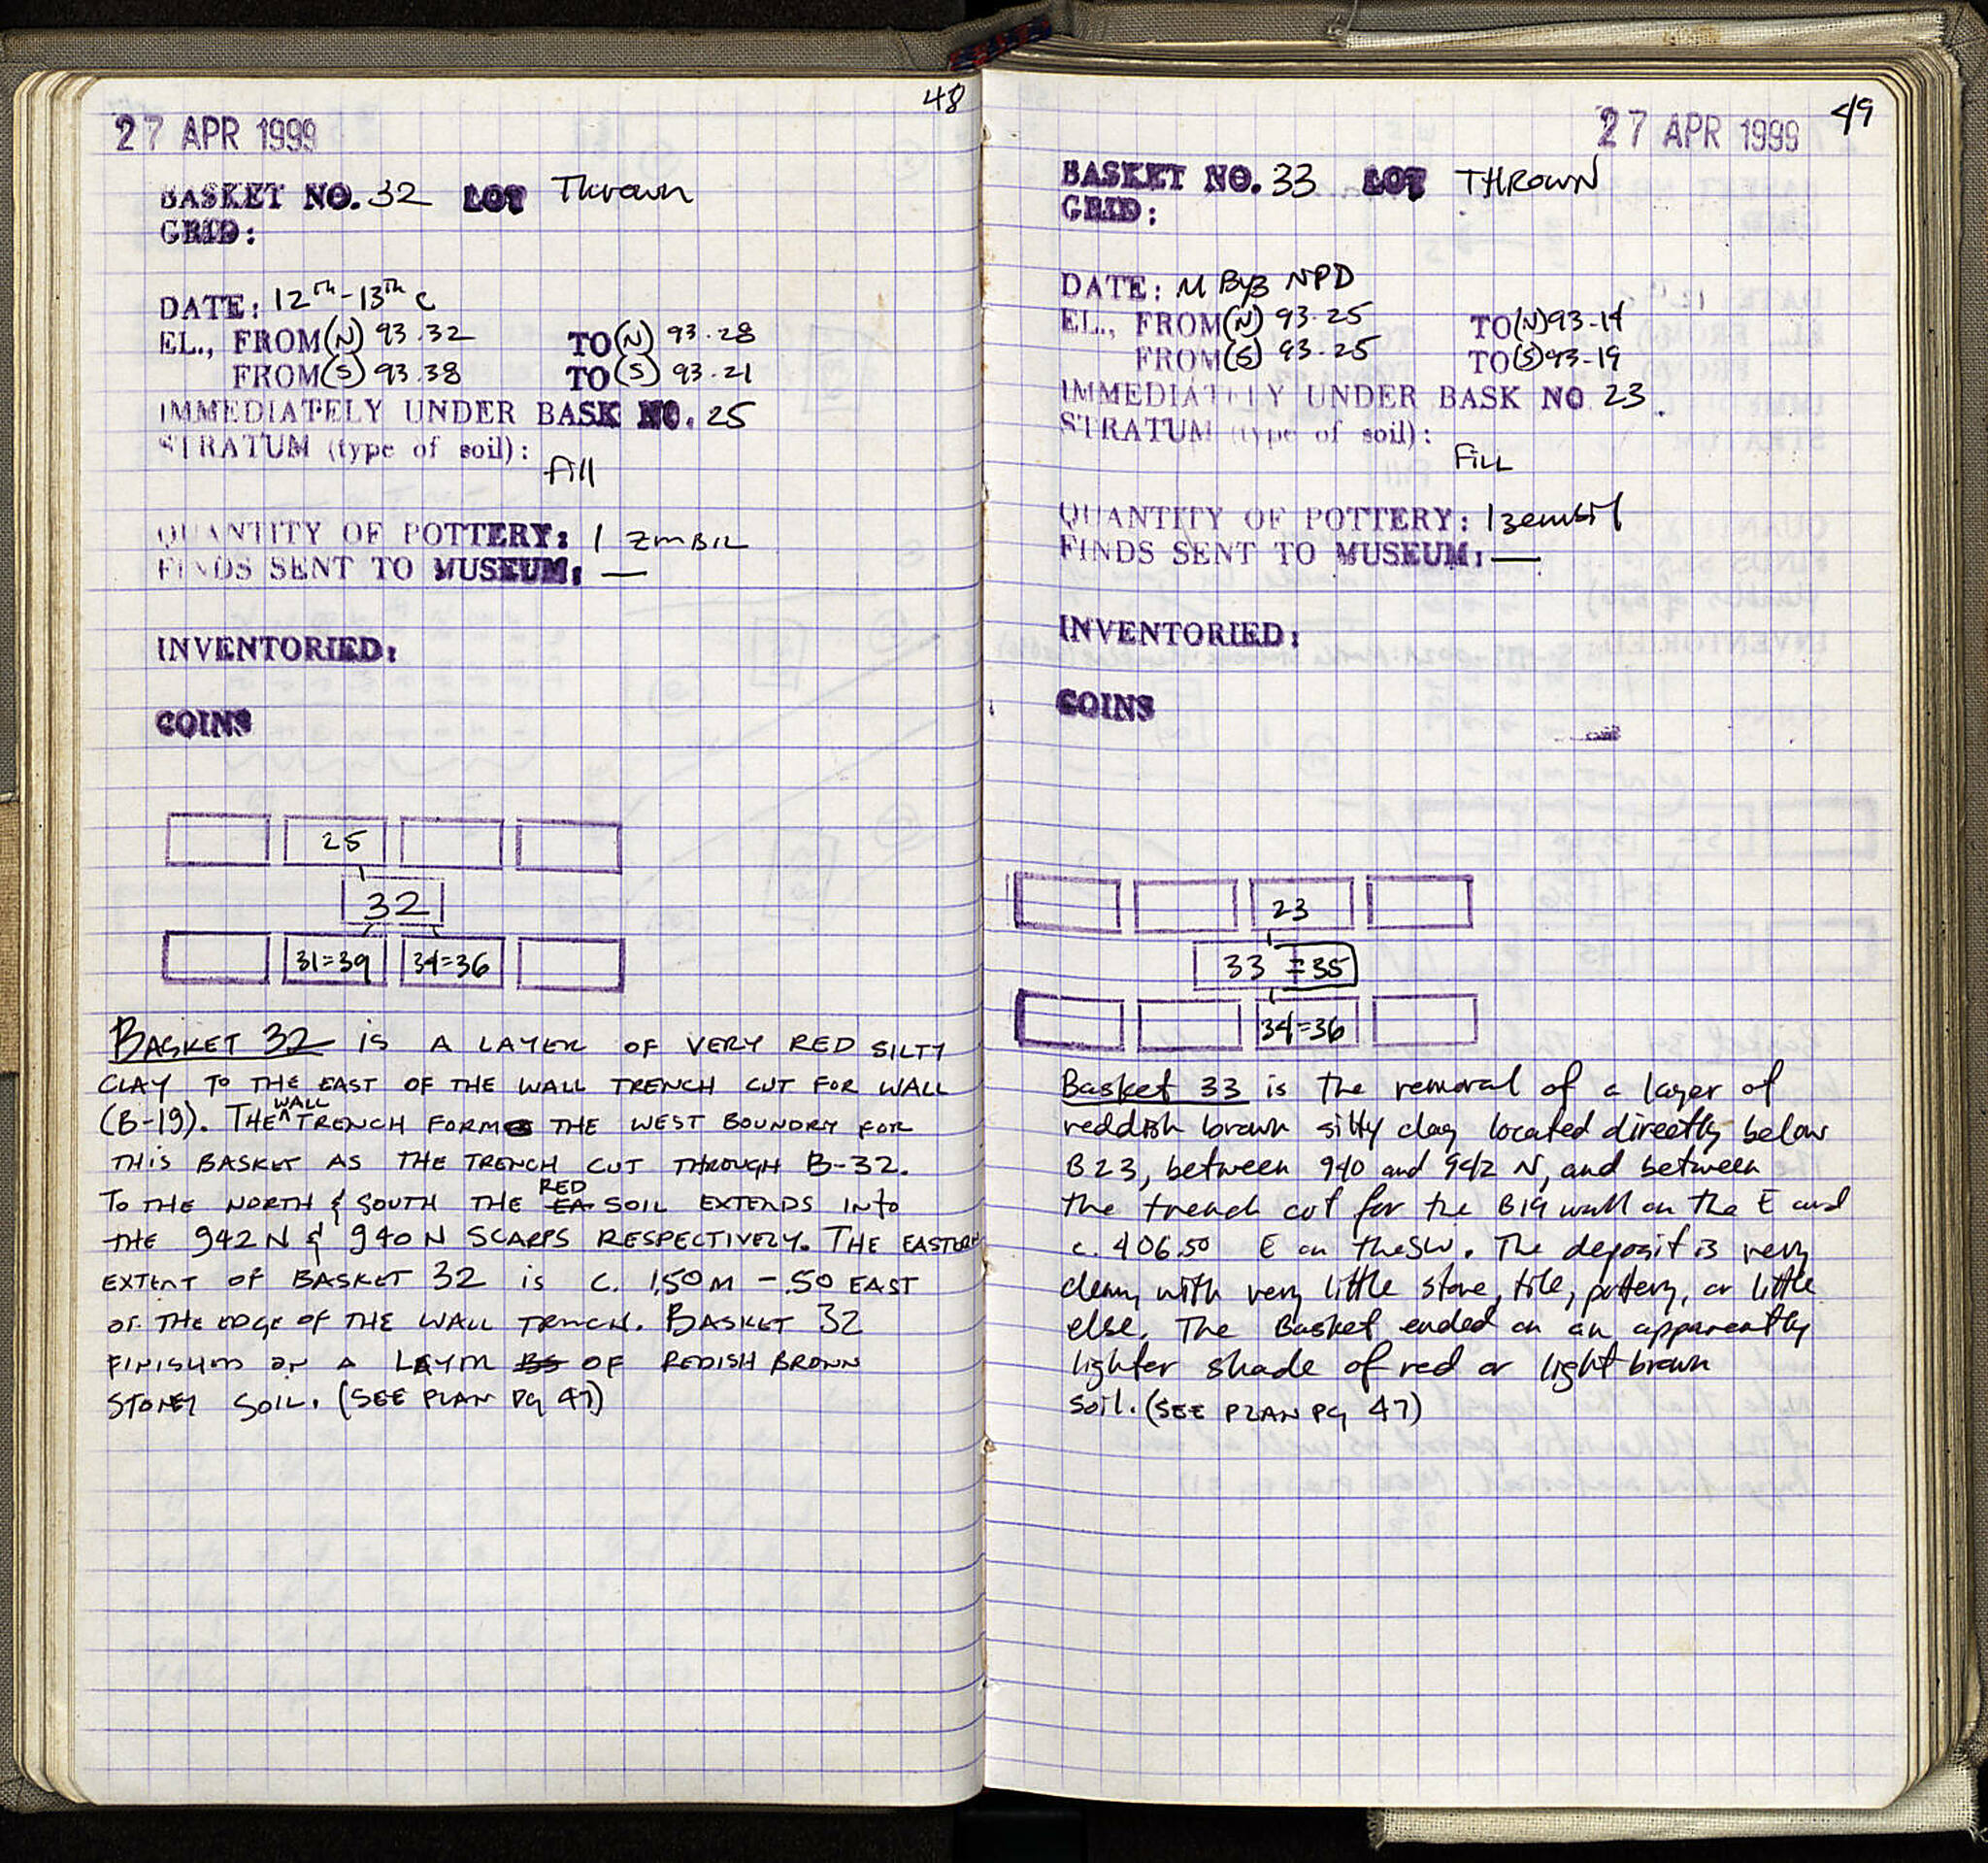 48
27 APR 1999
BASKET NO. 32 LOT Thrown
GRID:
DATE: 12th-13th c
EL., FROM (N) 93.32 TO (N) 93.28
FROM (S) 93.38 TO (S) 93.21
IMMEDIATELY UNDER BASK NO. 25
STRATUM (type of soil):
fill
QUANTITY OF POTTERY: 1 ZMBIL
FINDS SENT TO MUSEUM: —
INVENTORIED:
COINS
25
32
31=39 34=36
BASKET 32 IS A LAYER OF VERY RED SILTY
CLAY TO THE EAST OF THE WALL TRENCH CUT FOR WALL
(B-19). THE WALL TRENCH FORMS THE WEST BOUNDRY FOR
THIS BASKET AS THE TRENCH CUT THROUGH B-32.
TO THE NORTH & SOUTH THE EA RED SOIL EXTENDS INTO
THE 942 N & 940 N SCARPS RESPECTIVELY. THE EASTERN
EXTENT OF BASKET 32 IS C. 1.50M - .50 EAST
OF THE EDGE OF THE WALL TRENCH. BASKET 32
FINISHED ON A LAYER OF REDISH BROWN
STONEY SOIL. (SEE PLAN Pg 47)
49
27 APR 1999
BASKET NO. 33 LOT THROWN
GRID:
DATE: M Byz NPD
EL., FROM (N) 93.25 TO (N) 93.14
FROM (S) 93.25 TO (S) 93.19
IMMEDIATELY UNDER BASK NO 23.
STRATUM (type of soil):
FILL
QUANTITY OF POTTERY: 1 zembil
FINDS SENT TO MUSEUM: —
INVENTORIED:
COINS
23
33 =35
34=36
Basket 33 is the removal of a layer of
reddish brown silty clay located directly below
B23, between 940 and 942 N, and between
the trench cut for the B19 wall on the E and
c. 406.50 E on the SW. The deposit is very
clean, with very little stone, tile, pottery, or little
else. The Basket ended on an apparently
lighter shade of red or light brown
soil. (SEE PLAN Pg 47)